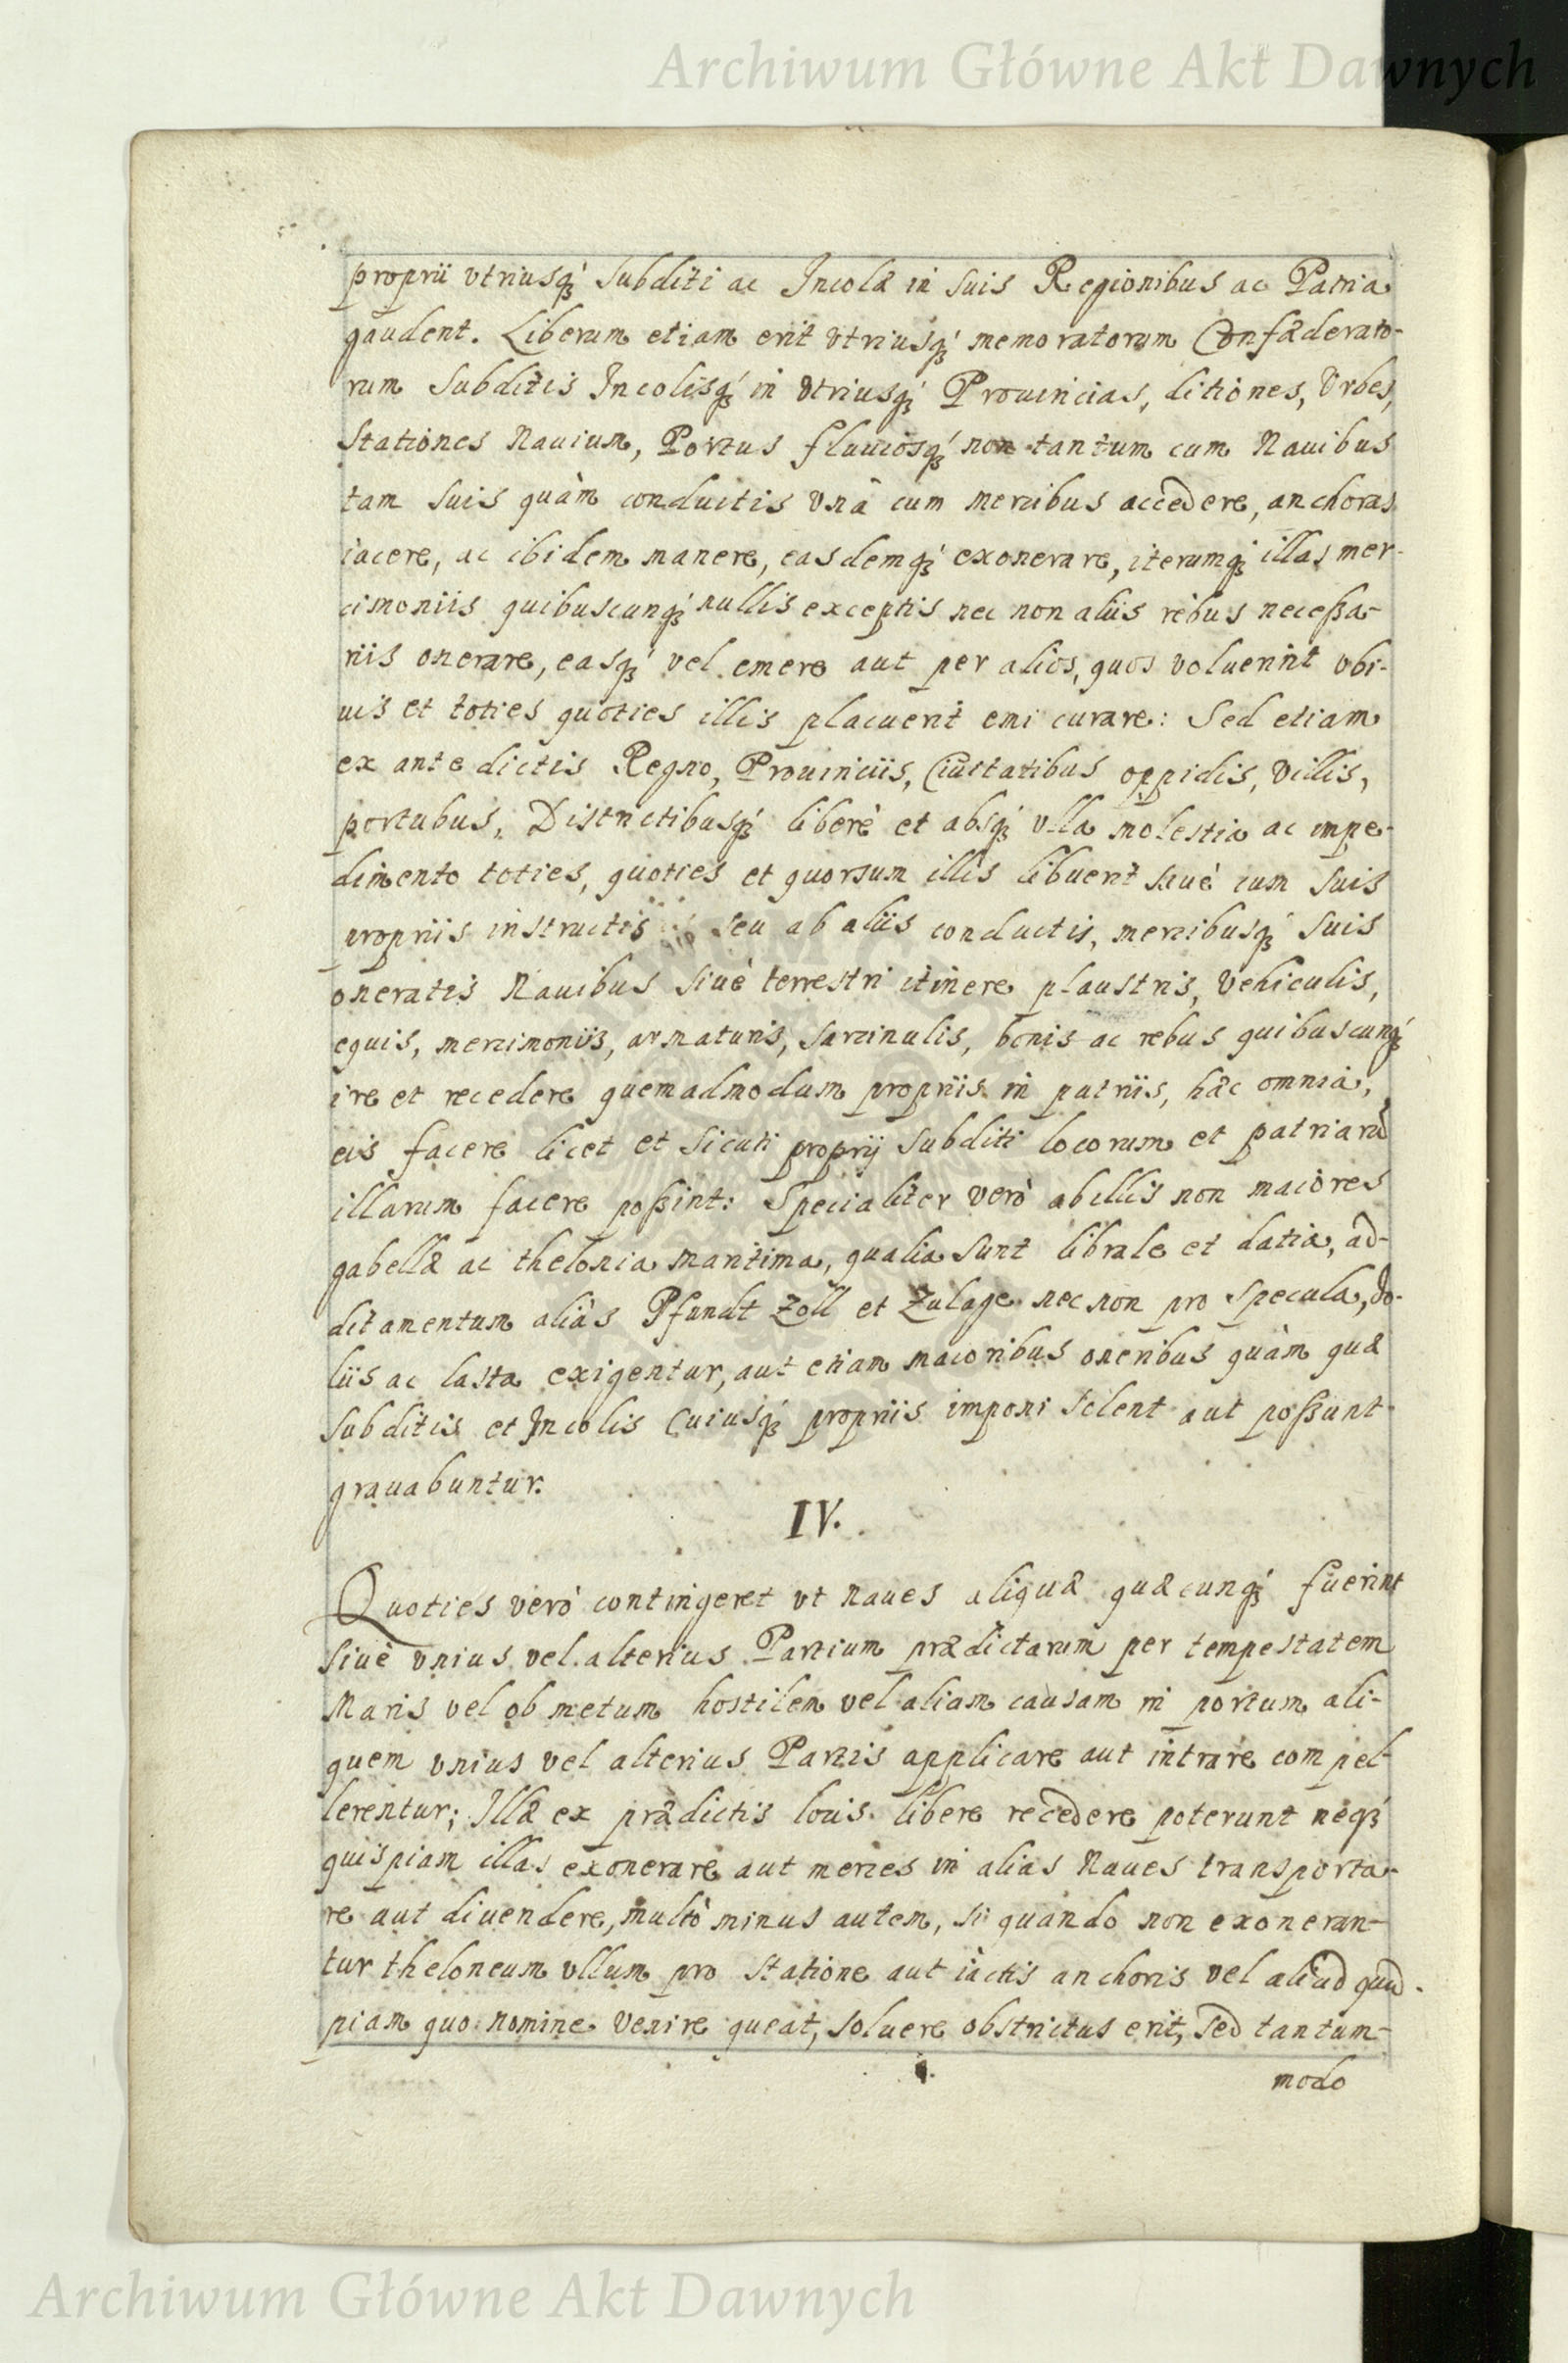 Archiwum Główne Akt Dawnych
proprii vtriusq́ꝫ Subditi ac Incolæ in suis Regionibus ac Patria
gaudent. Liberum etiam erit vtriusq́ꝫ memoratorum Confæderato-
rum Subditis Incolisq́ꝫ in vtriusq́ꝫ Prouincias, ditiones, Vrbes,
Stationes Nauium, Portus fluuiosq́ꝫ non tantum cum Nauibus
tam suis quàm conductis vnâ cum mercibus accedere, anchoras
iacere, ac ibidem manere, easdemq́ꝫ exonerare, iterumq́ꝫ illas mer-
cimoniis quibuscunq́ꝫ nullis exceptis nec non aliis rebus neceßa-
riis onerare, easq́ꝫ vel emere aut per alios, quos voluerint vbi-
uis et toties quoties illis placuerit emi curare: Sed etiam
ex ante dictis Regno, Prouinciis, Ciuitatibus oppidis, villis,
portubus, Districtibusq́ꝫ liberè et absq́ꝫ vlla molestia ac impe-
dimento toties, quoties et quorsum illis libuerit siuè cum suis
propriis instructis seu ab aliis conductis, mercibusq́ꝫ suis
oneratis Nauibus siuè terrestri itinere plaustris, Vehiculis,
equis, mercimoniis, armaturis, sarcinulis, bonis ac rebus quibuscunq́ꝫ
ire et recedere quemadmodum propriis in patriis, hæc omnia,
eis facere licet et sicuti proprij subditi locorum et patriarū
illarum facere poßint: Specialiter verò ab illis non maiores
gabellæ ac thelonia maritima, qualia sunt librale et datia, ad-
ditamentum aliàs Pfundt Zoll et Zulage nec non pro specula, do-
liis ac lasta exigentur, aut etiam maioribus oneribus quàm quæ
subditis et Incolis Cuiusq́ꝫ propriis imponi solent aut poßunt
grauabuntur.
IV.
Quoties verò contingeret vt naues aliquæ quæcunq́ꝫ fuerint
siuè vnius vel alterius Partium prædictarum per tempestatem
Maris vel ob metum hostilem vel aliam causam in portum ali-
quem vnius vel alterius Partis applicare aut intrare compel-
lerentur; Illæ ex prædictis locis libere recedere poterunt neq́ꝫ
quispiam illas exonerare aut merces in alias Naues transporta-
re aut diuendere, multò minus autem, si quando non exoneran-
tur theloneum vllum pro statione aut iactis anchoris vel aliud quid-
piam quo nomine venire queat, soluere obstrictus erit, sed tantum-
modo
Archiwum Główne Akt Dawnych